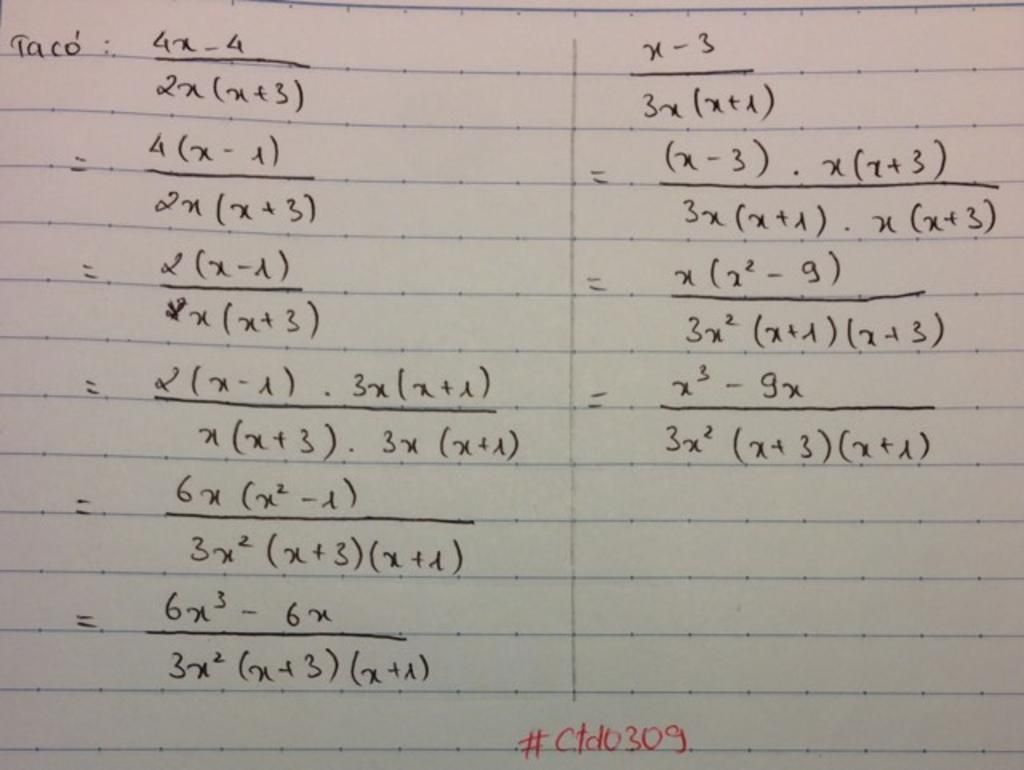 Ta có : 4x - 4
2x(x+3)
= 4(x - 1)
2x(x+3)
= 2(x-1)
x(x+3)
= 2(x-1) . 3x(x+1)
x(x+3) . 3x(x+1)
= 6x(x² - 1)
3x²(x+3)(x+1)
= 6x³ - 6x
3x²(x+3)(x+1)
x - 3
3x(x+1)
= (x-3) . x(x+3)
3x(x+1) . x(x+3)
= x(x² - 9)
3x²(x+1)(x+3)
= x³ - 9x
3x²(x+3)(x+1)
#Ctd0309